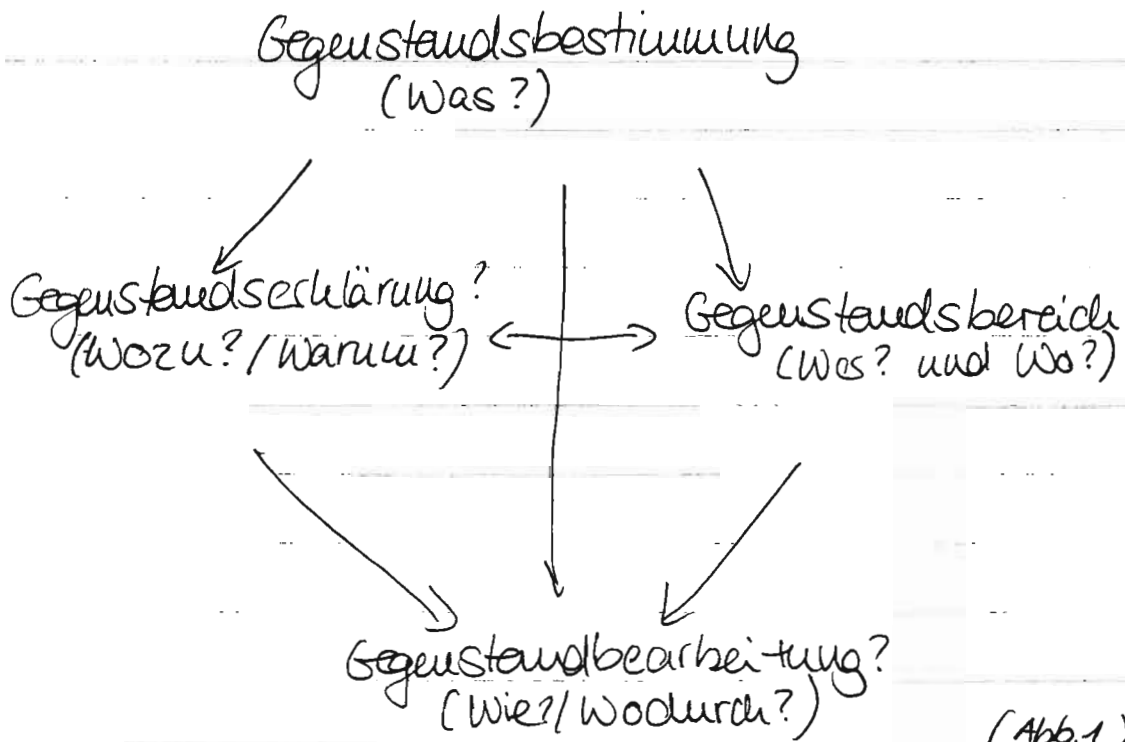 Gegenstandsbestimmung
(Was?)
Gegenstandserklärung?
(Wozu?/Warum?)
Gegenstandsbereich
(Was? und Wo?)
Gegenstandbearbeitung?
(Wie?/Wodurch?)
(Abb.1)